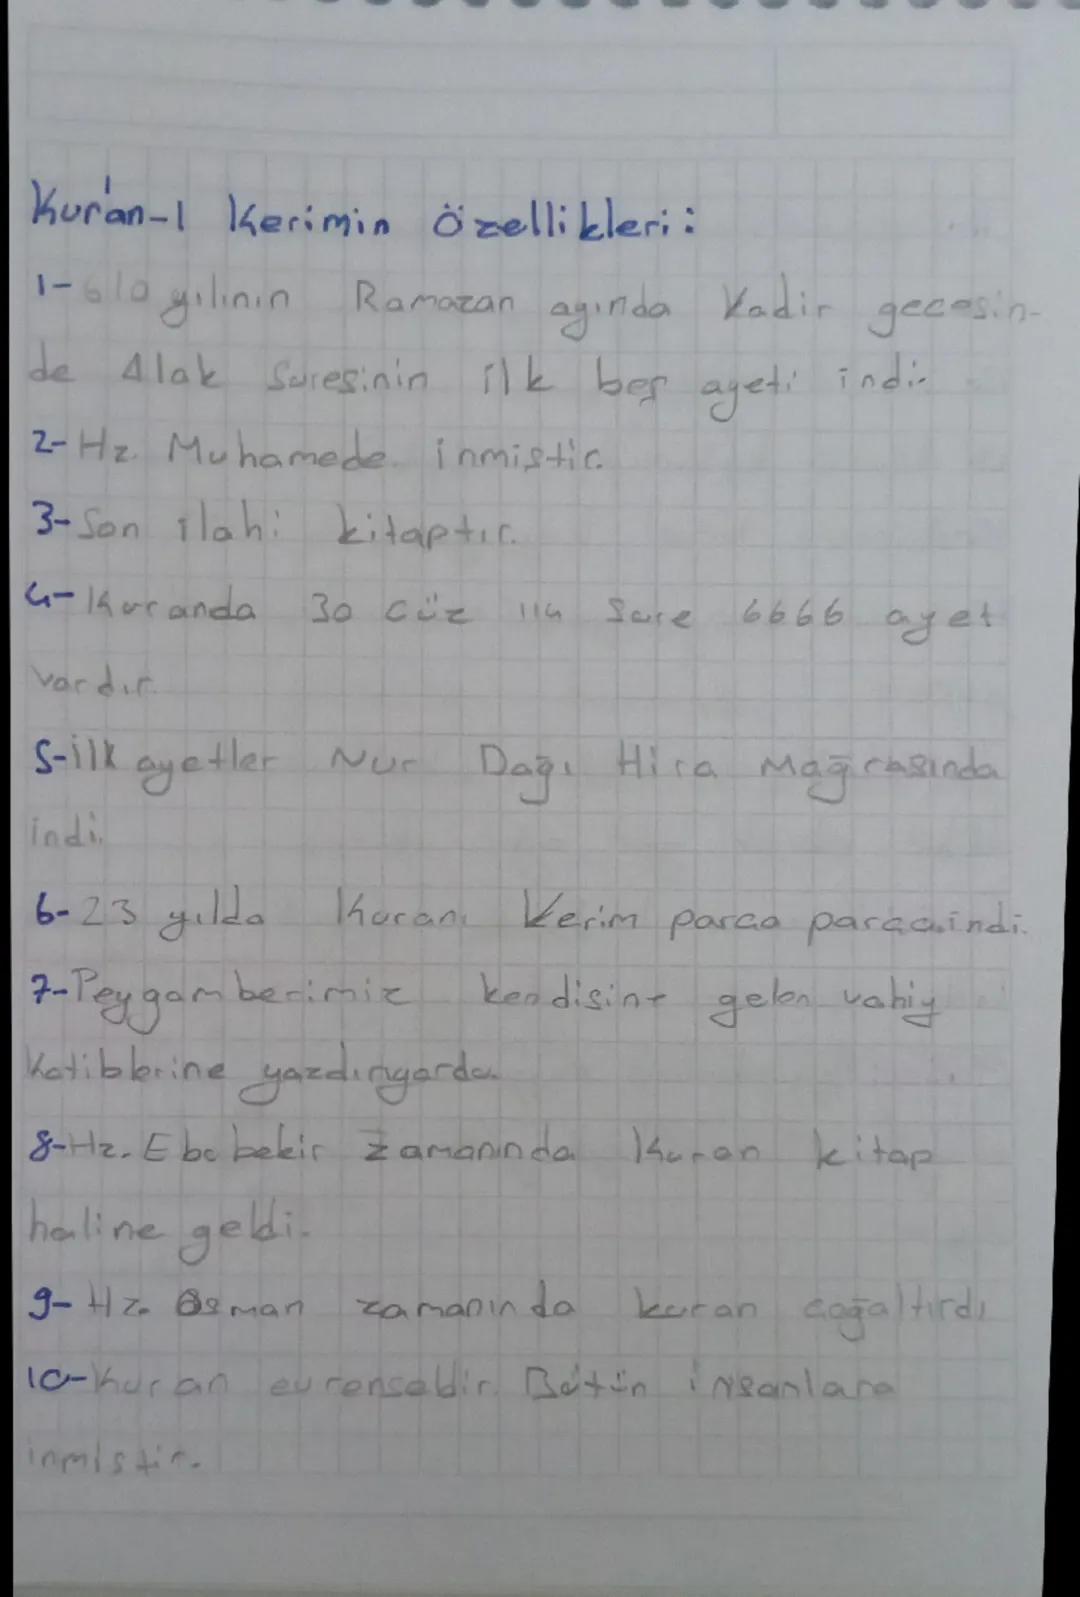 Kur'an-ı Kerimin Özellikleri:
1-610 yılının Ramazan ayında Kadir gecesin-
de Alak Suresinin ilk beş ayeti indi.
2-Hz. Muhamede inmiştir.
3-Son ilahi kitaptır.
4-Kuranda 30 cüz 114 Sure 6666 ayet
vardır.
5-ilk ayetler Nur Dağı Hira Mağrasında
indi.
6-23 yılda Kuranı Kerim parça parça indi.
7-Peygamberimiz kendisine gelen vahiy
Katiblerine yazdırıyordu.
8-Hz. Ebu bekir zamanında Kuran kitap
haline geldi.
9-Hz. Osman zamanında kuran çoğaltırdı
10-Kuran evrenseldir. Bütün insanlara
inmiştir.